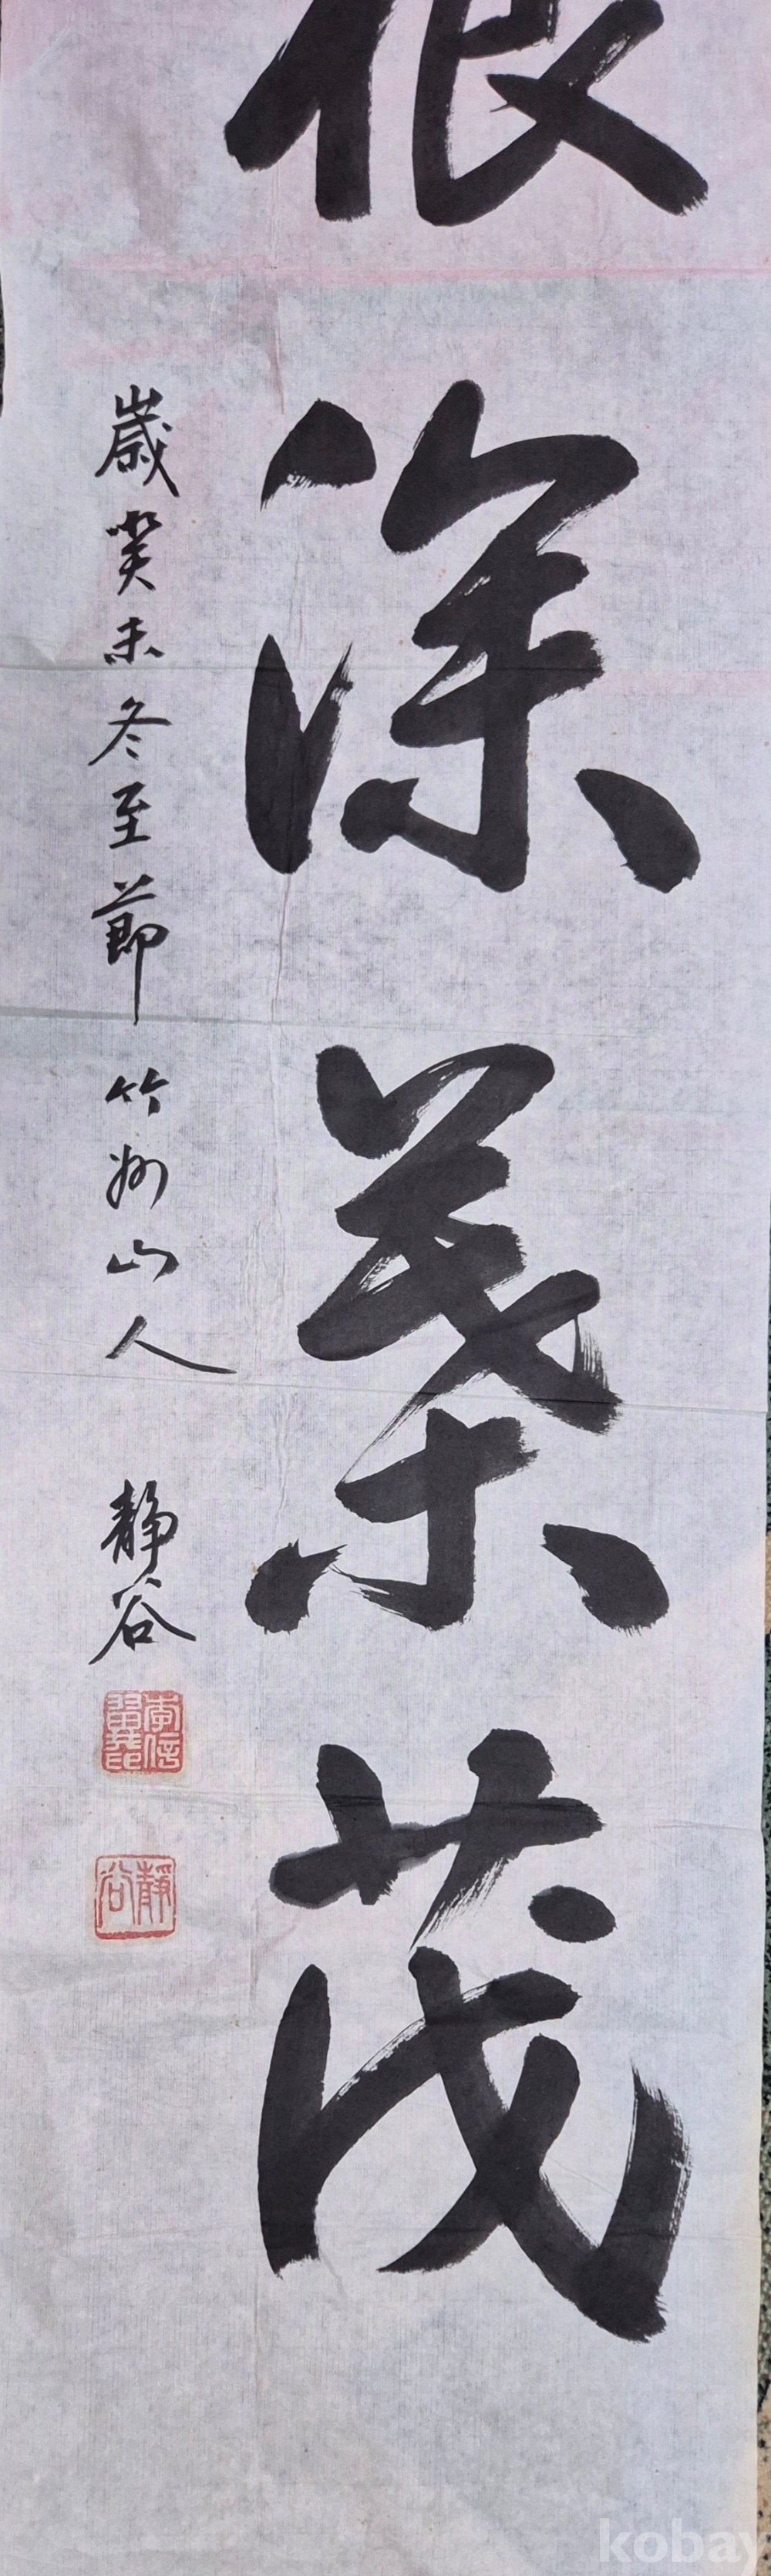 根深葉茂
歲癸未冬至節 竹州山人 靜谷
李信翼印
靜谷
kobay